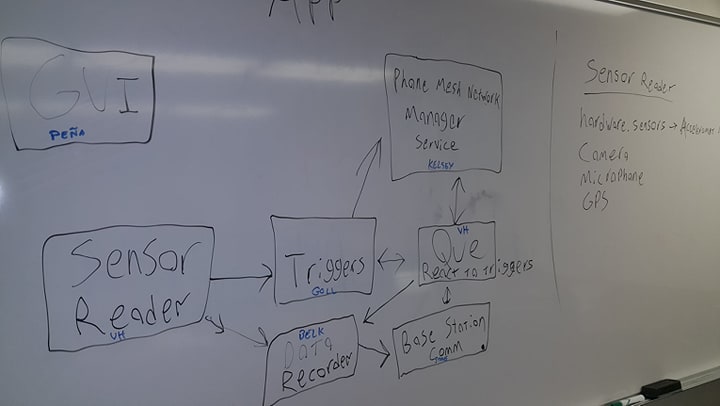 App
GUI
PEÑA
Phone Mesh Network
Manager
Service
KELSEY
Sensor
Reader
VH
Triggers
GOLL
VH
Que
React to triggers
BELK
Data
Recorder
Base Station
Comm
Sensor Reader
hardware.sensors →
Camera
Microphone
GPS